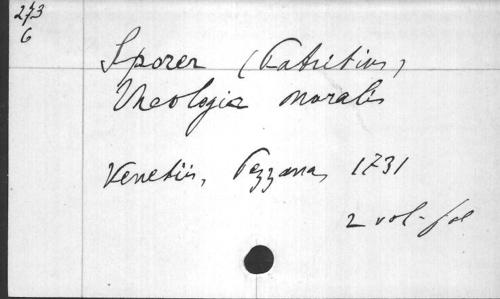 273
6
Sporer (Patritius)
Theologia moralis
Venetiis, Pezzana, 1731
2 vol. fol